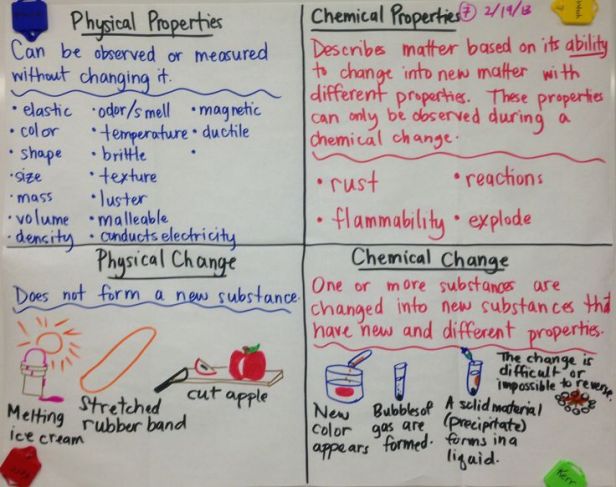 Physical Properties
Can be observed or measured
without changing it.
• elastic • odor/smell • magnetic
• color • temperature • ductile
• shape • brittle •
• size • texture
• mass • luster
• volume • malleable
• density • conducts electricity
Chemical Properties
7 2/19/13
Describes matter based on its ability
to change into new matter with
different properties. These properties
can only be observed during a
chemical change.
• rust • reactions
• flammability • explode
Physical Change
Does not form a new substance
Melting
ice cream
Stretched
rubber band
cut apple
Chemical Change
One or more substances are
changed into new substances that
have new and different properties.
New
color
appears
Bubbles of
gas are
formed.
A solid material
(precipitate)
forms in a
liquid.
The change is
difficult or
impossible to reverse.
Kerr